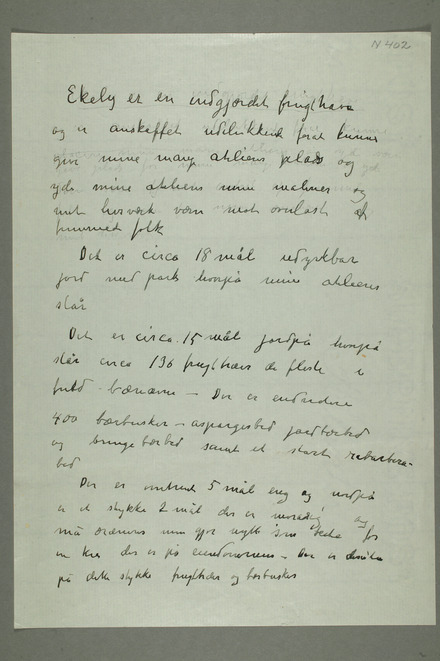 N 402
Ekely er en indgjærdet frugthave
og er anskaffet udelukkende forat kunne
give mine mange atelierer plads og
yde mine atelierer mine malerier og
mit livsværk værn mod overlast af
fremmed folk
Det er circa 18 mål udyrkbar
jord med park hvorpå mine atelierer
står
Det er circa 15 mål jord på hvorpå
står circa 136 frugttræer de fleste i
fuld bæreevne – Der er endvidere
400 bærbusker – aspargesbed jordbærbed
og bringebærbed samt et stort rabarbara-
bed
Der er omtrent 5 mål eng og
er et stykke 2 mål der er
må ordnes som gjør nytte som for
en ko der er på eiendommen – Der er desuden
på dette stykke frugttræer og bærbusker